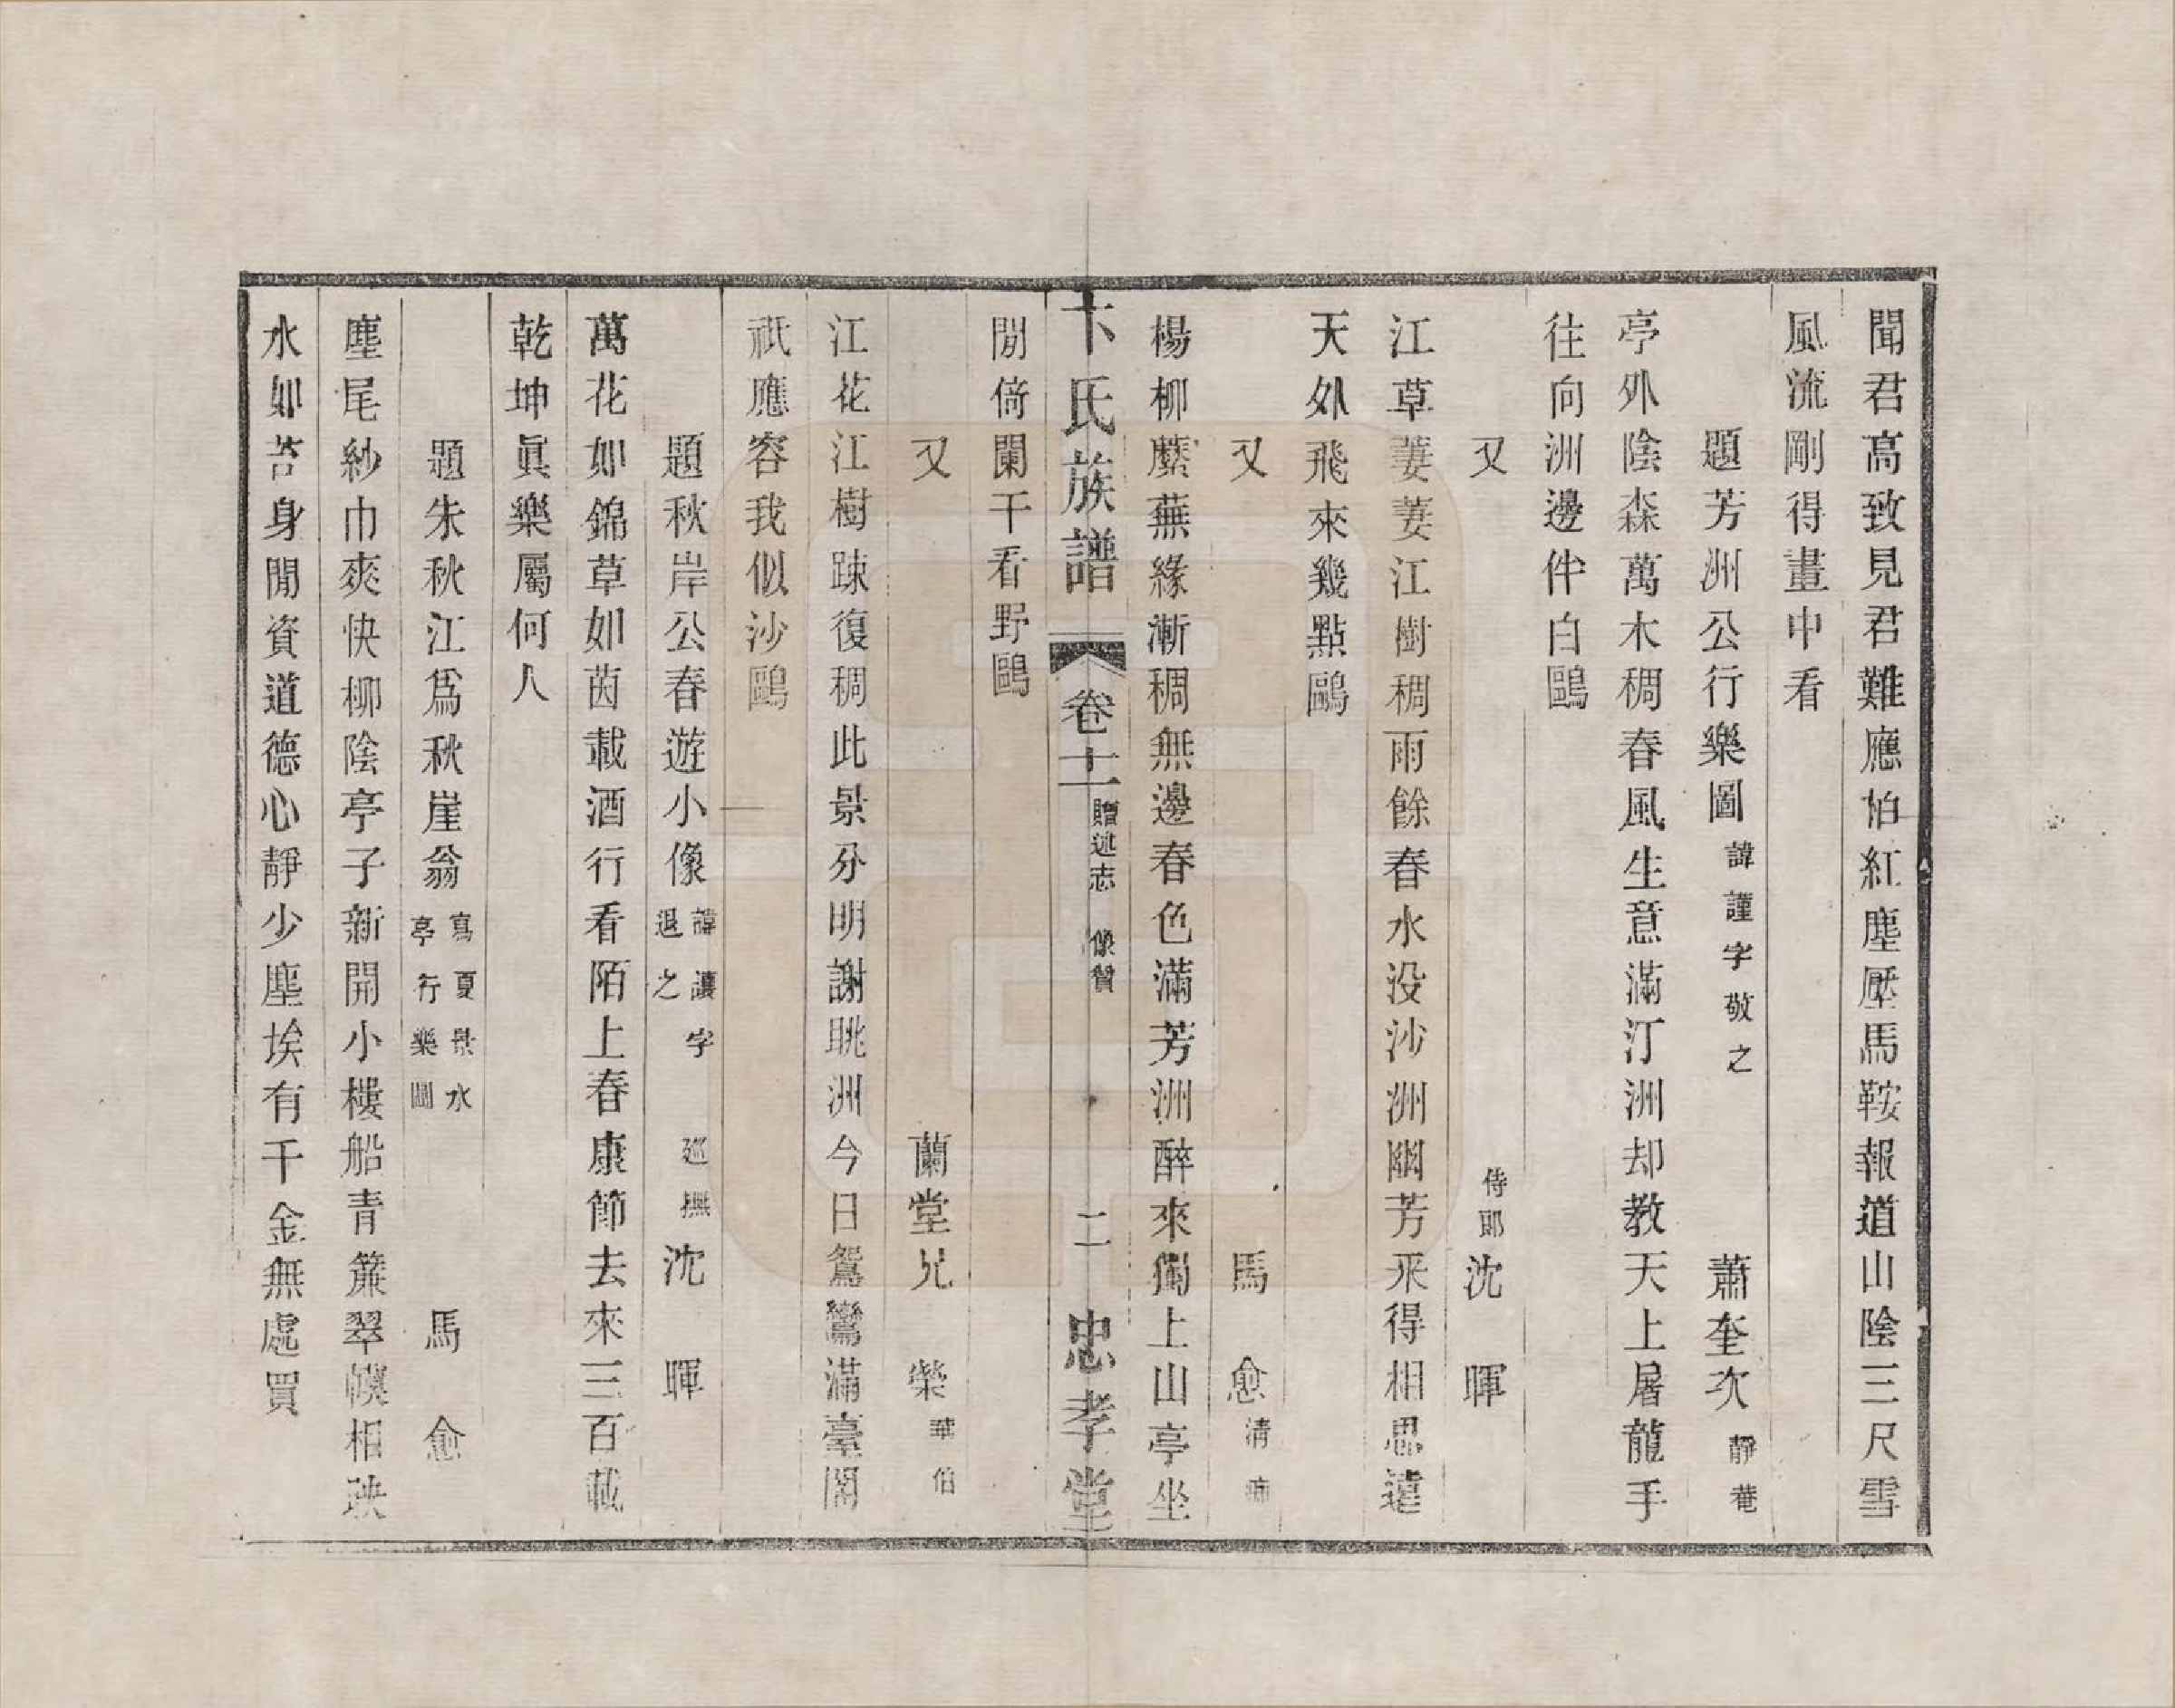 聞君高致見君難應怕紅塵壓馬鞍報道山陰三尺雪
風流剛得畫中看
題芳洲公行樂圖 諱謹字敬之 蕭奎次 靜菴
亭外陰森萬木稠春風生意滿汀洲却教天上屠龍手
往向洲邊伴白鷗
又 侍郎 沈暉
江草萋萋江樹稠雨餘春水没沙洲幽芳采得相思遠
天外飛來幾點鷗
又 馬愈 清痴
楊柳蘪蕪緣漸稠無邊春色滿芳洲醉來獨上山亭坐
卞氏族譜 卷十一 贈述志 像贊 二 忠孝堂
閒倚闌干看野鷗
又 蘭堂兄榮 華伯
江花江樹踈復稠此景分明謝眺洲今日鴛鸞滿臺閣
祇應容我似沙鷗
題秋岸公春遊小像 諱讓字退之 廵撫 沈暉
萬花如錦草如茵載酒行看陌上春康節去來三百載
乾坤眞樂屬何人
題朱秋江爲秋崖翁 寫夏景水亭行樂圖 馬愈
塵尾紗巾爽快柳陰亭子新開小樓船青簾翠幙相映
水如苔身閒資道德心靜少塵埃有千金無處買